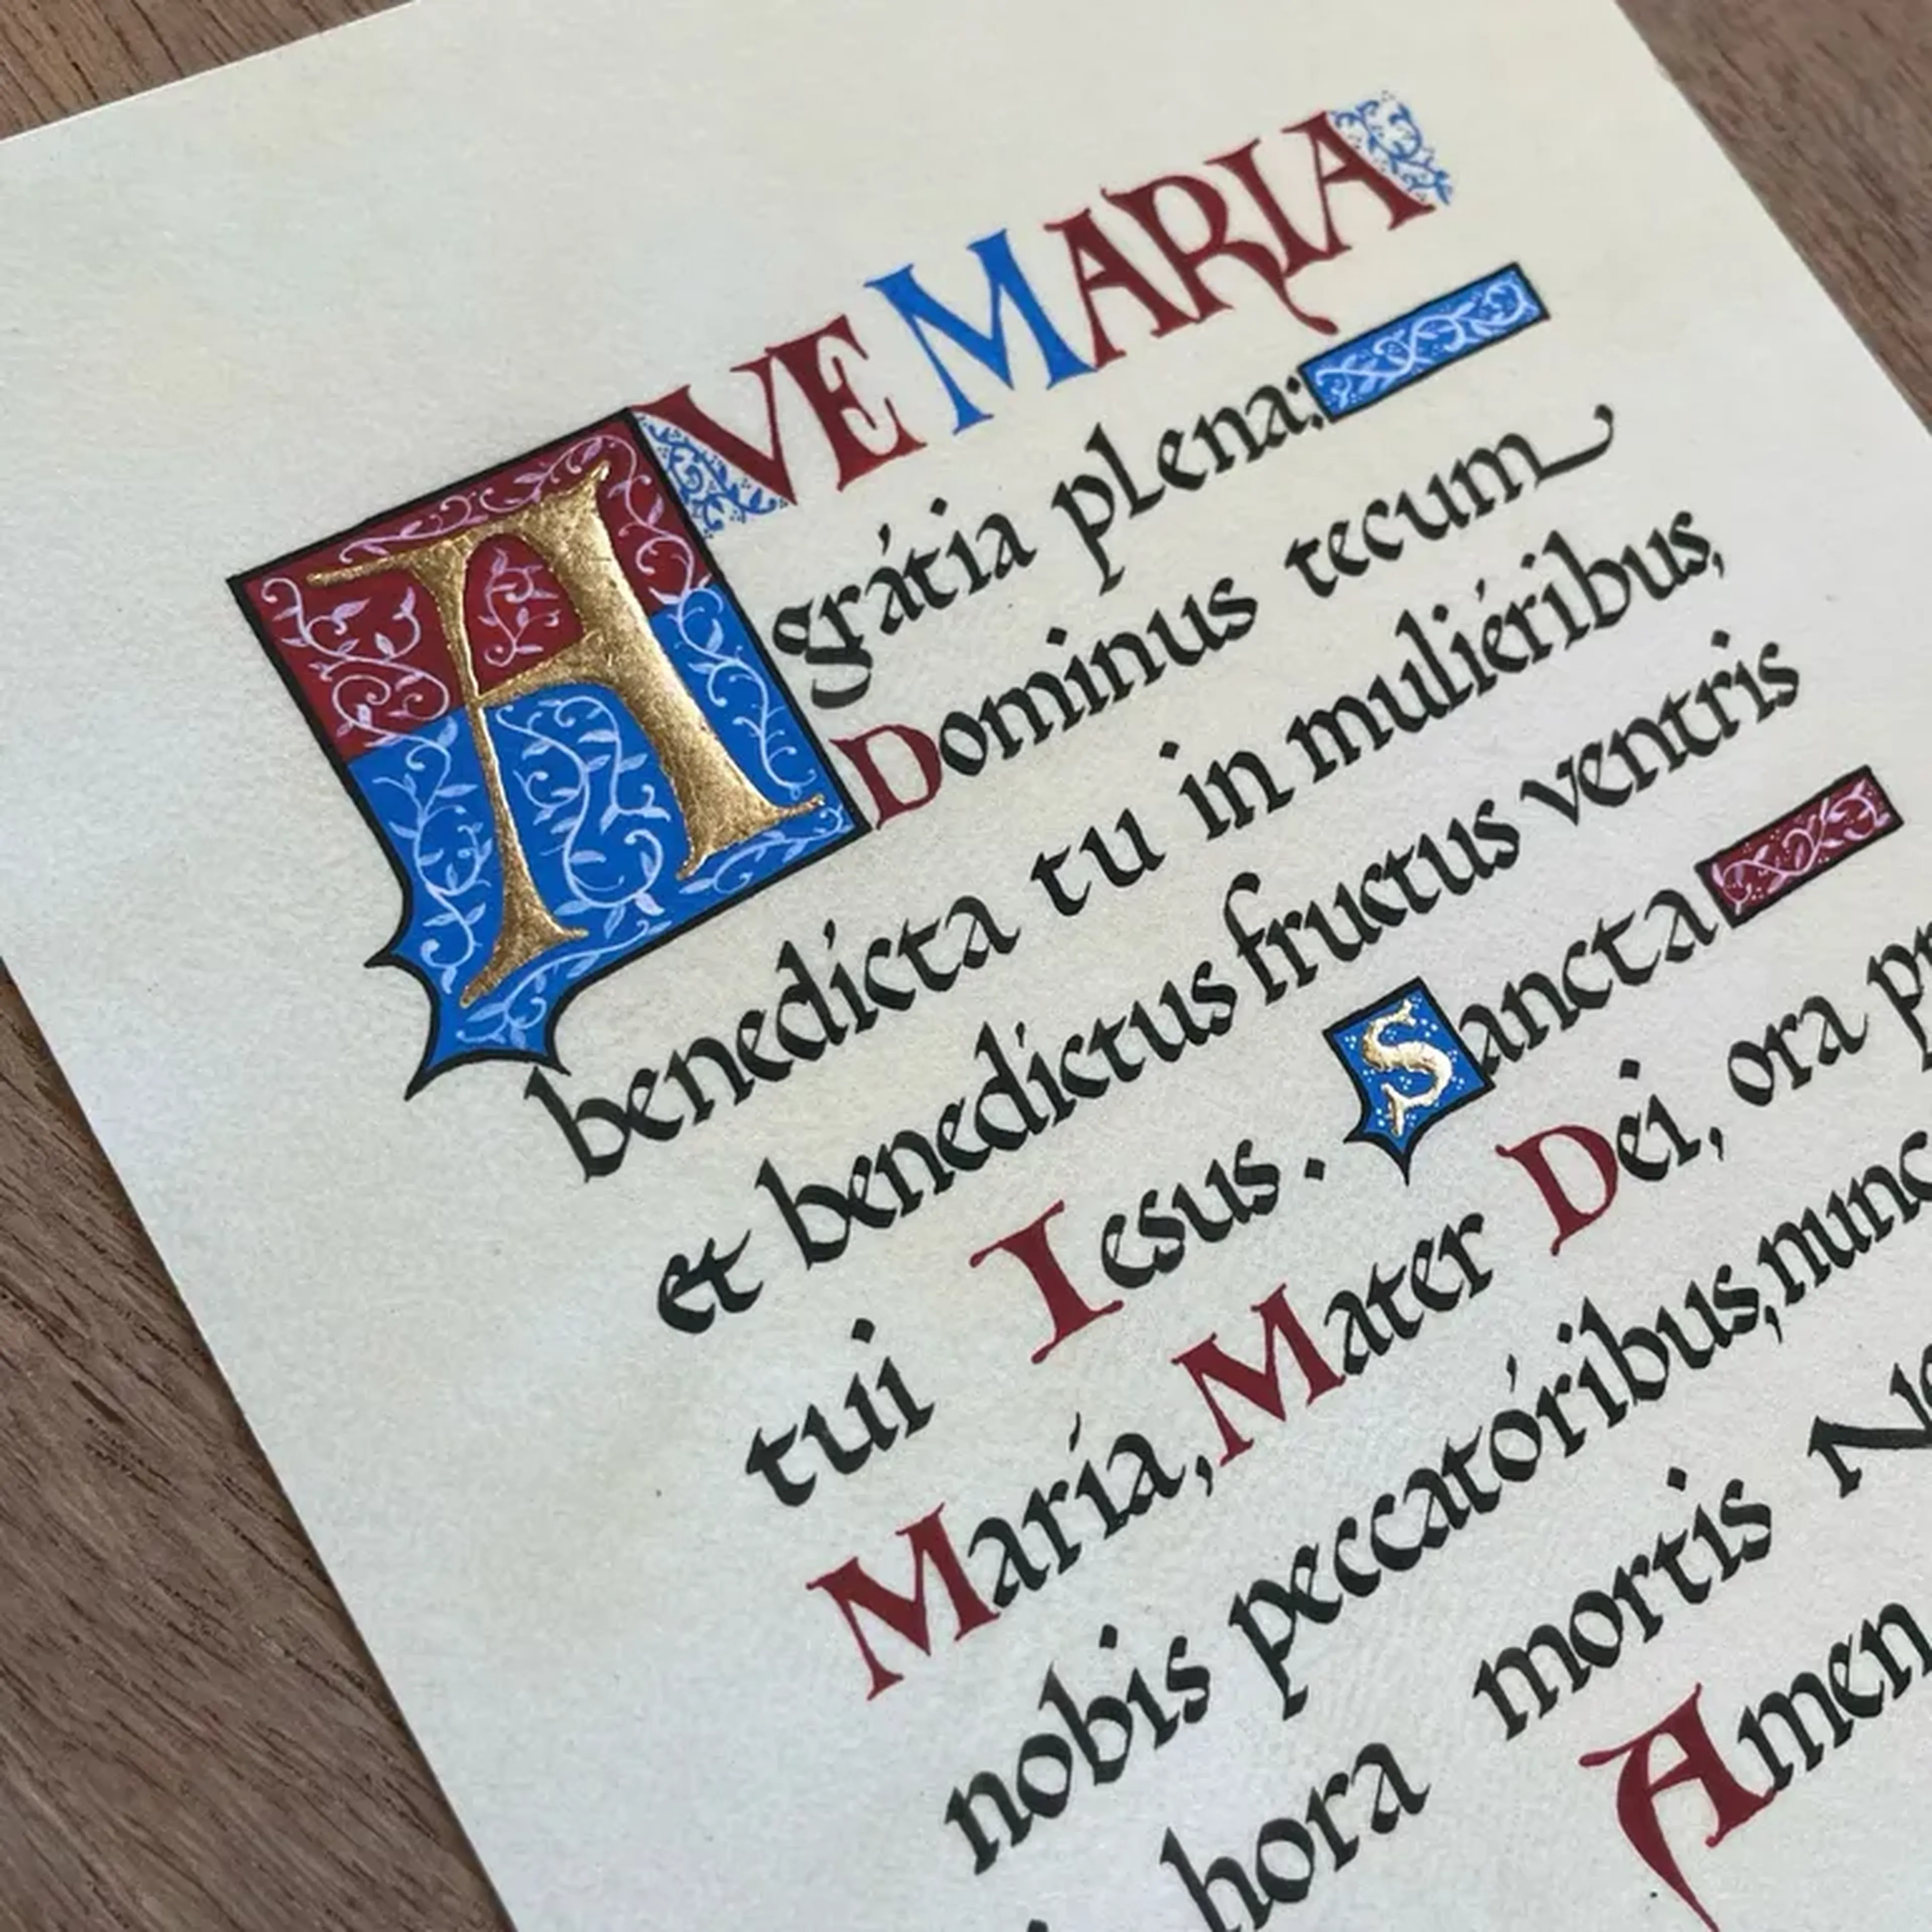 AVE MARIA
grátia plena:
Dominus tecum
benedicta tu in muliéribus,
et benedictus fructus ventris
tui Iesus. Sancta
María, Mater Dei, ora
nobis peccatóribus, nunc
hora mortis
Amen